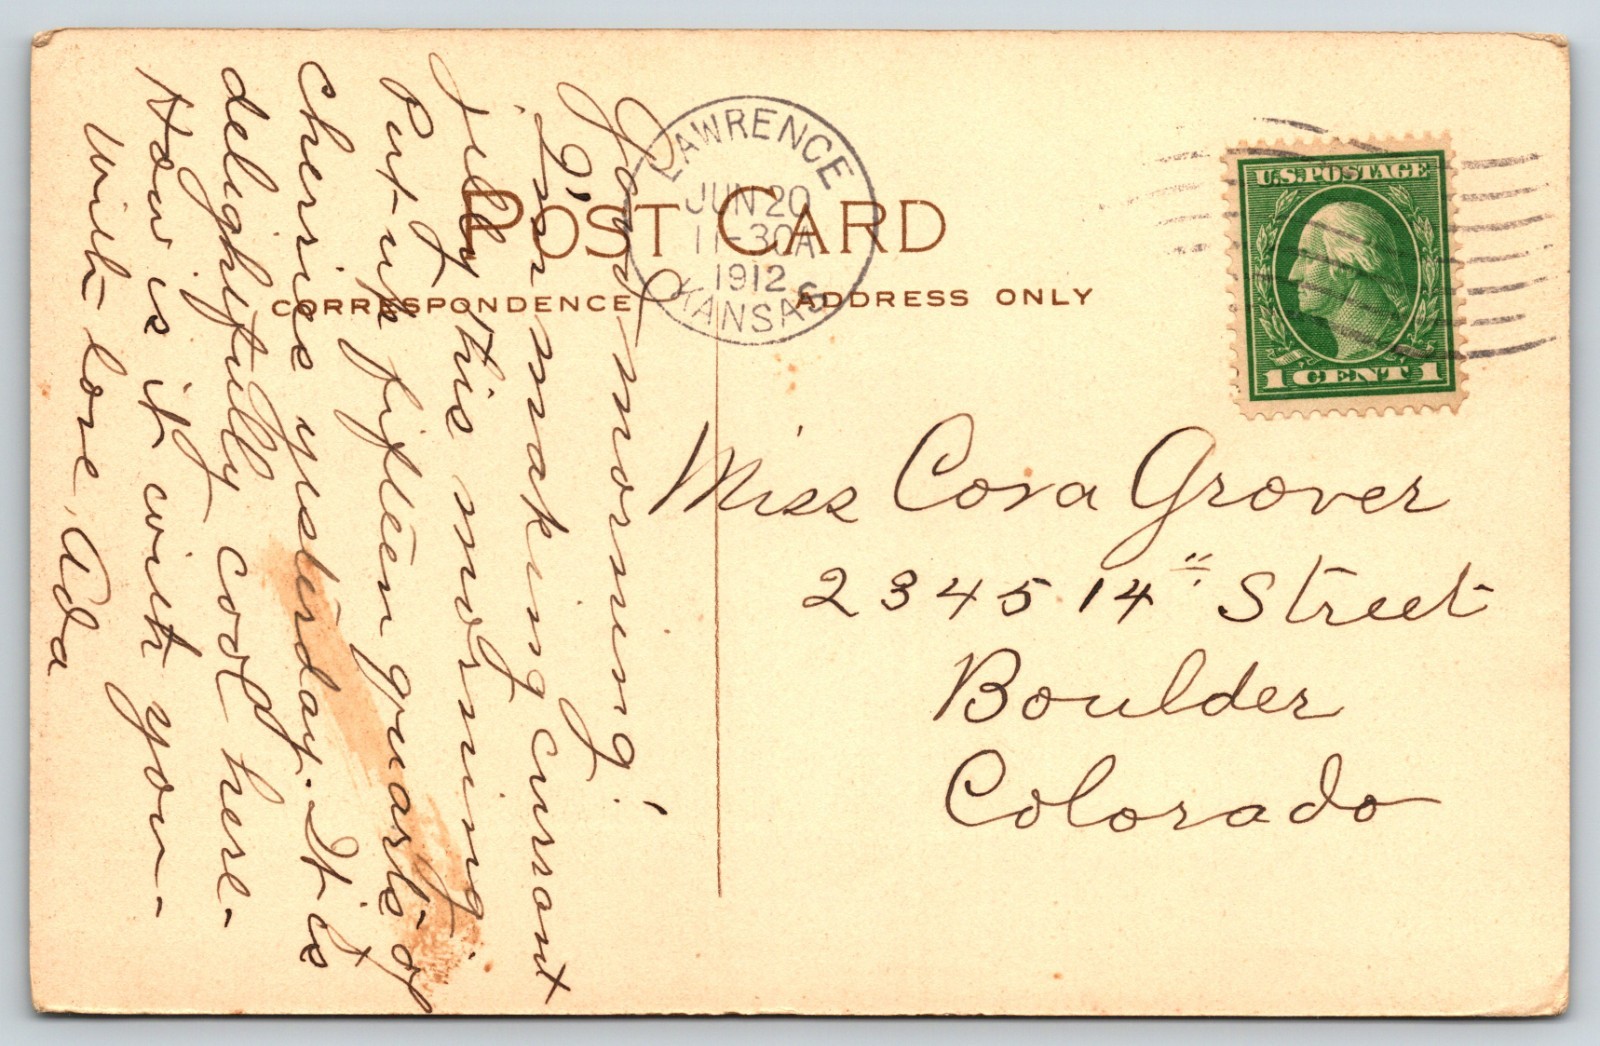 POST CARD
CORRESPONDENCE
ADDRESS ONLY
LAWRENCE
JUN 20
11-30A
1912
KANSAS
U.S. POSTAGE
1 CENT 1
Good morning!
I'm making currant
jelly this morning.
Put up fifteen quarts of
cherries yesterday. It is
delightfully cool here.
How is it with you -
With love, Ada
Miss Cora Grover
2345 14" Street
Boulder
Colorado